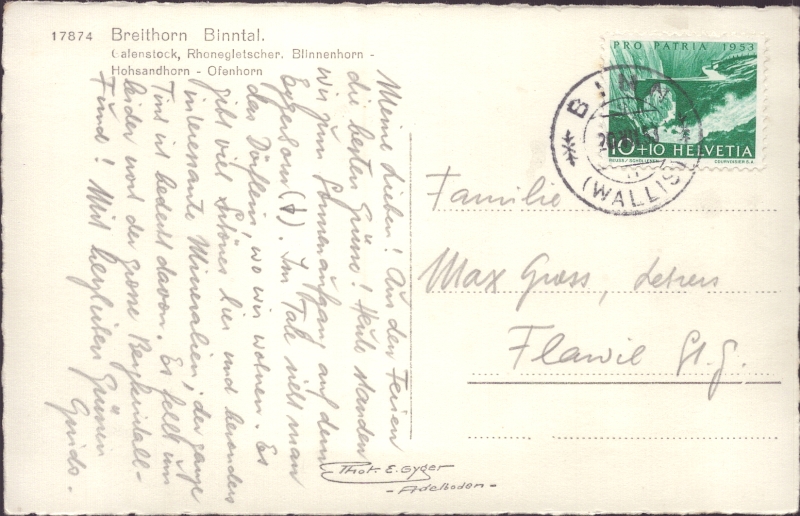 17874 Breithorn Binntal.
Galenstock, Rhonegletscher, Blinnenhorn -
Hohsandhorn - Ofenhorn
Meine Lieben! Aus den Ferien
die besten Grüsse! Heute standen
wir zum Sonnenaufgang auf dem
Eggerhorn (↓). Im Tale sieht man
das Dörflein, wo wir wohnen. Es
gibt viel Schönes hier und besonders
interessante Mineralien, der ganze
Tisch ist bedeckt davon. Es fehlt uns
leider noch der grosse Bergkristall-
Fund! Mit herzlichen Grüssen
Guido.
PRO PATRIA 1953
10+10 HELVETIA
COURVOISIER S.A.
BINN
(WALLIS)
Familie
Max Gross, Lehrers
Flawil St. G.
Phot. E. Gyger
- Adelboden -